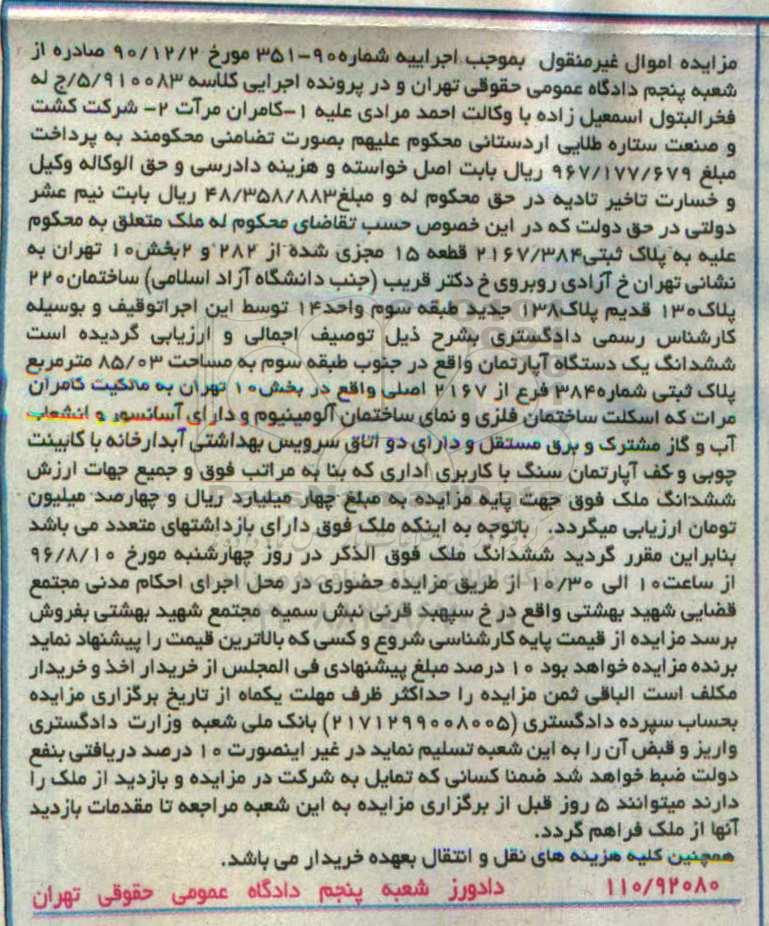 مزایده اموال غیرمنقول بموجب اجراییه شماره۹۰-۳۵۱ مورخ ۹۰/۱۲/۲ صادره از
شعبه پنجم دادگاه عمومی حقوقی تهران و در پرونده اجرایی کلاسه ۵/۹۱۰۰۸۳/ج له
فخرالبتول اسمعیل زاده با وکالت احمد مرادی علیه ۱-کامران مرآت ۲- شرکت کشت
و صنعت ستاره طلایی اردستانی محکوم علیهم بصورت تضامنی محکومند به پرداخت
مبلغ ۹۶۷/۱۷۷/۶۷۹ ریال بابت اصل خواسته و هزینه دادرسی و حق الوکاله وکیل
و خسارت تاخیر تادیه در حق محکوم له و مبلغ۴۸/۳۵۸/۸۸۳ ریال بابت نیم عشر
دولتی در حق دولت که در این خصوص حسب تقاضای محکوم له ملک متعلق به محکوم
علیه به پلاک ثبتی۲۱۶۷/۳۸۴ قطعه ۱۵ مجزی شده از ۲۸۲ و ۲بخش۱۰ تهران به
نشانی تهران خ آزادی روبروی خ دکتر قریب (جنب دانشگاه آزاد اسلامی) ساختمان۲۲۰
پلاک۱۳۰ قدیم پلاک۱۳۸ جدید طبقه سوم واحد۱۴ توسط این اجراتوقیف و بوسیله
کارشناس رسمی دادگستری بشرح ذیل توصیف اجمالی و ارزیابی گردیده است
ششدانگ یک دستگاه آپارتمان واقع در جنوب طبقه سوم به مساحت ۸۵/۰۳ مترمربع
پلاک ثبتی شماره۳۸۴ فرع از ۲۱۶۷ اصلی واقع در بخش۱۰ تهران به مالکیت کامران
مرات که اسکلت ساختمان فلزی و نمای ساختمان آلومینیوم و دارای آسانسور و انشعاب
آب و گاز مشترک و برق مستقل و دارای دو اتاق سرویس بهداشتی آبدارخانه با کابینت
چوبی و کف آپارتمان سنگ با کاربری اداری که بنا به مراتب فوق و جمیع جهات ارزش
ششدانگ ملک فوق جهت پایه مزایده به مبلغ چهار میلیارد ریال و چهارصد میلیون
تومان ارزیابی میگردد. باتوجه به اینکه ملک فوق دارای بازداشتهای متعدد می باشد
بنابراین مقرر گردید ششدانگ ملک فوق الذکر در روز چهارشنبه مورخ ۹۶/۸/۱۰
از ساعت۱۰ الی ۱۰/۳۰ از طریق مزایده حضوری در محل اجرای احکام مدنی مجتمع
قضایی شهید بهشتی واقع در خ سپهبد قرنی نبش سمیه مجتمع شهید بهشتی بفروش
برسد مزایده از قیمت پایه کارشناسی شروع و کسی که بالاترین قیمت را پیشنهاد نماید
برنده مزایده خواهد بود ۱۰ درصد مبلغ پیشنهادی فی المجلس از خریدار اخذ و خریدار
مکلف است الباقی ثمن مزایده را حداکثر ظرف مهلت یکماه از تاریخ برگزاری مزایده
بحساب سپرده دادگستری (۲۱۷۱۲۹۹۰۰۸۰۰۵) بانک ملی شعبه وزارت دادگستری
واریز و قبض آن را به این شعبه تسلیم نماید در غیر اینصورت ۱۰ درصد دریافتی بنفع
دولت ضبط خواهد شد ضمنا کسانی که تمایل به شرکت در مزایده و بازدید از ملک را
دارند میتوانند ۵ روز قبل از برگزاری مزایده به این شعبه مراجعه تا مقدمات بازدید
آنها از ملک فراهم گردد.
همچنین کلیه هزینه های نقل و انتقال بعهده خریدار می باشد.
۱۱۰/۹۲۰۸۰ دادورز شعبه پنجم دادگاه عمومی حقوقی تهران